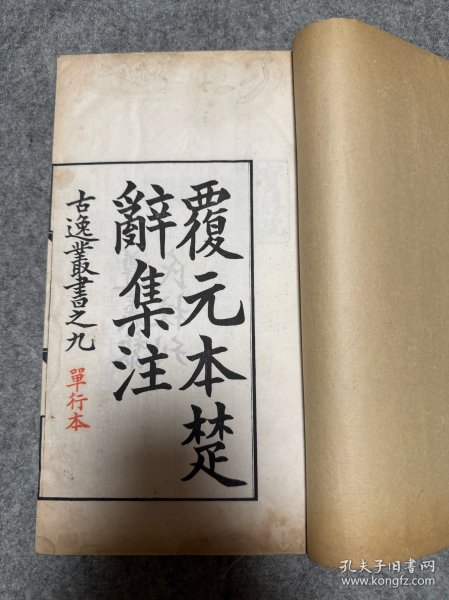 覆元本楚
辭集注
古逸叢書之九 單行本
孔夫子旧书网
www.kongfz.com